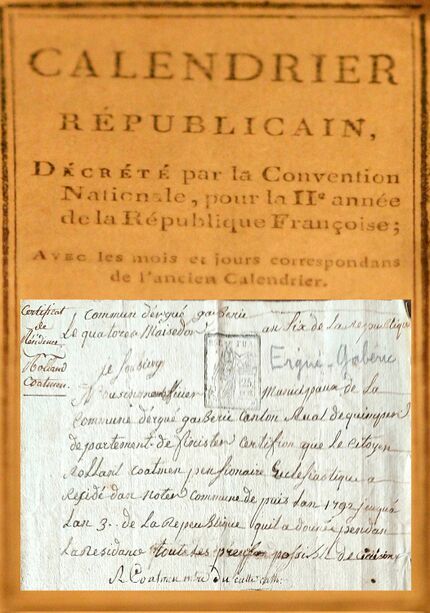 CALENDRIER
RÉPUBLICAIN,
DÉCRÉTÉ par la Convention
Nationale, pour la IIe année
de la République Françoise;
AVEC les mois et jours correspondans
de l'ancien Calendrier.
Certificat
de
Résidence
Rolland
Coatmen
Commun d'ergué gaberic
Le quatorze Messidor an Six de La Republique
Ergué-Gabéric
je soussigné
municipaux de La
Commune d'ergué gaberic Canton Rural de quimper
departement de finister Certifion que le Citoyen
Rolland Coatmen pensionaire Eclesiastique a
Residé dan noter Commune de puis Lan 1792 jusqua
Lan 3.. de La Republique quil a donée pendan
La Residance toutes les possible de Civisme
R Coatmen du culte cath: